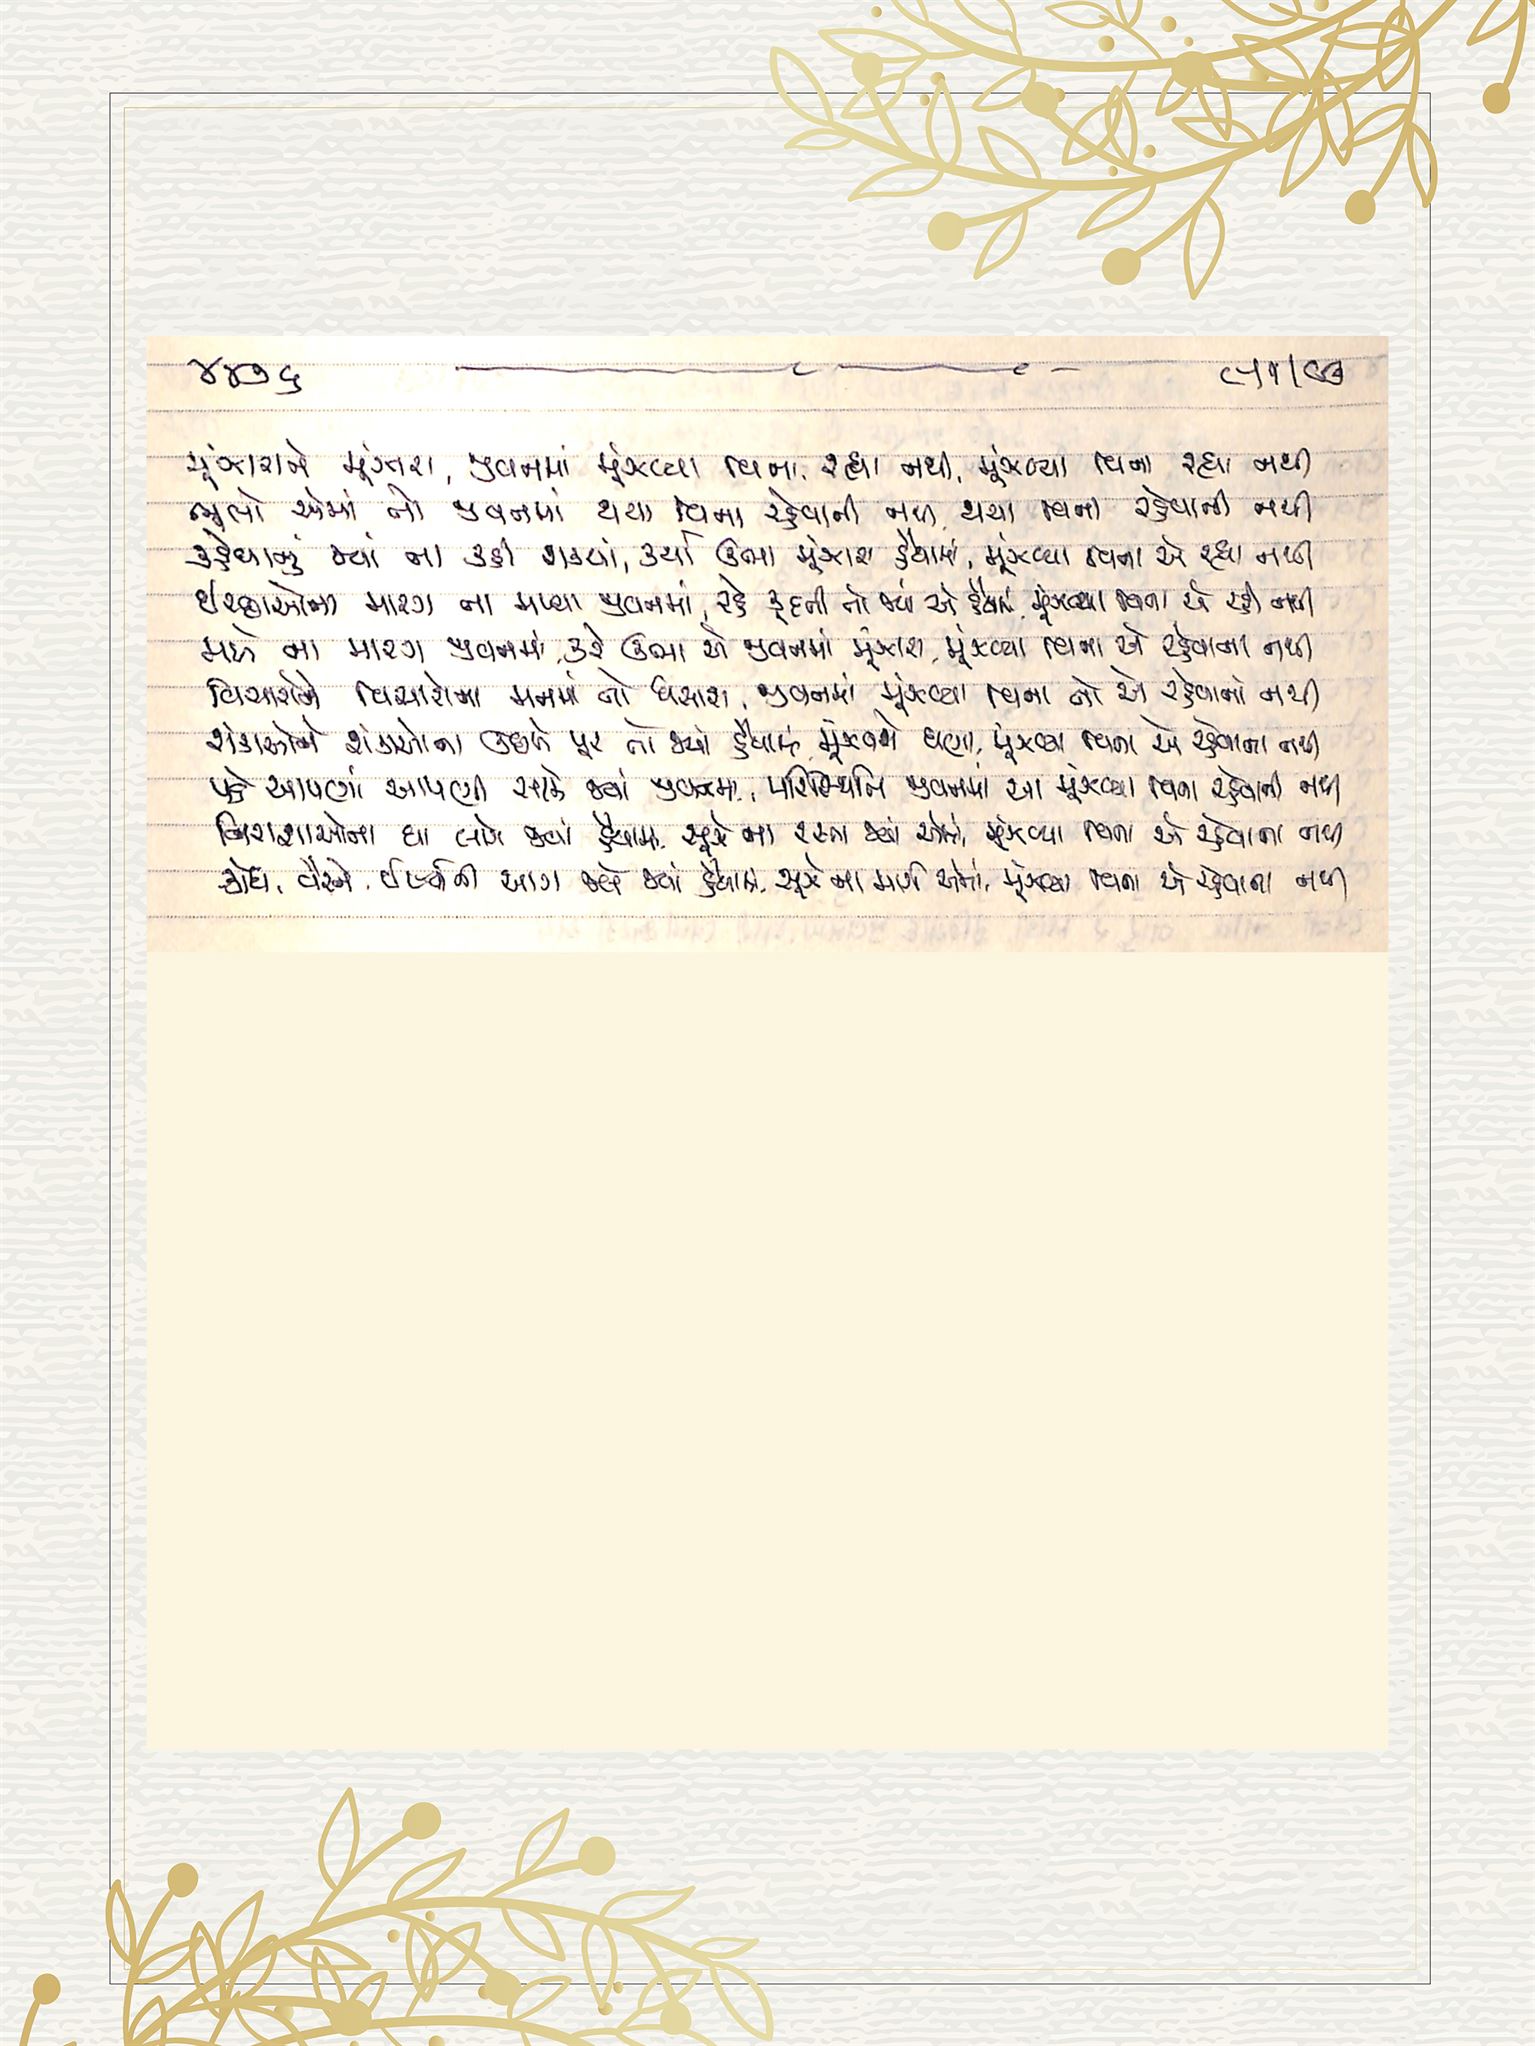 ૪૪૭૬
મૂંઝારાને મૂંઝારા, જીવનમાં મૂંઝવ્યા વિના રહ્યા નથી, મૂંઝવ્યા વિના રહ્યા નથી
ભૂલો એમાં તો જીવનમાં થયા વિના રહેવાની નથી, થયા વિના રહેવાની નથી
કહેવાનું જ્યાં ના કહી શક્યાં, કર્યા ઊભા મૂંઝારા હૈયામાં, મૂંઝવ્યા વિના એ રહ્યા નથી
ઈચ્છાઓના મારગ ના મળ્યા જીવનમાં, રહે કૂદતી તો જ્યાં એ હૈયામાં, મૂંઝવ્યા વિના એ રહી નથી
મળે ના મારગ જીવનમાં, કરે ઊભા એ જીવનમાં મૂંઝારા, મૂંઝવ્યા વિના એ રહેવાના નથી
વિચારોને વિચારોના મનમાં તો ધસારા, જીવનમાં મૂંઝવ્યા વિના તો એ રહેવાના નથી
શંકાઓને શંકાઓના ઊછળે પૂર તો જ્યાં હૈયામાં, મૂંઝવશે ઘણા, મૂંઝવ્યા વિના એ રહેવાના નથી
પડે આપણાં આપણી સામે જ્યાં જીવનમાં, પરિસ્થિતિ જીવનમાં આ મૂંઝવ્યા વિના રહેવાની નથી
નિરાશાઓના ઘા લાગે જ્યાં હૈયામાં, સૂઝે ના રસ્તા જ્યાં એમાં, મૂંઝવ્યા વિના એ રહેવાના નથી
ક્રોધ, વૈરને, ઈર્ષ્યાની આગ જલે જ્યાં હૈયામાં, સૂઝે ના માર્ગ એમાં, મૂંઝવ્યા વિના એ રહેવાના નથી